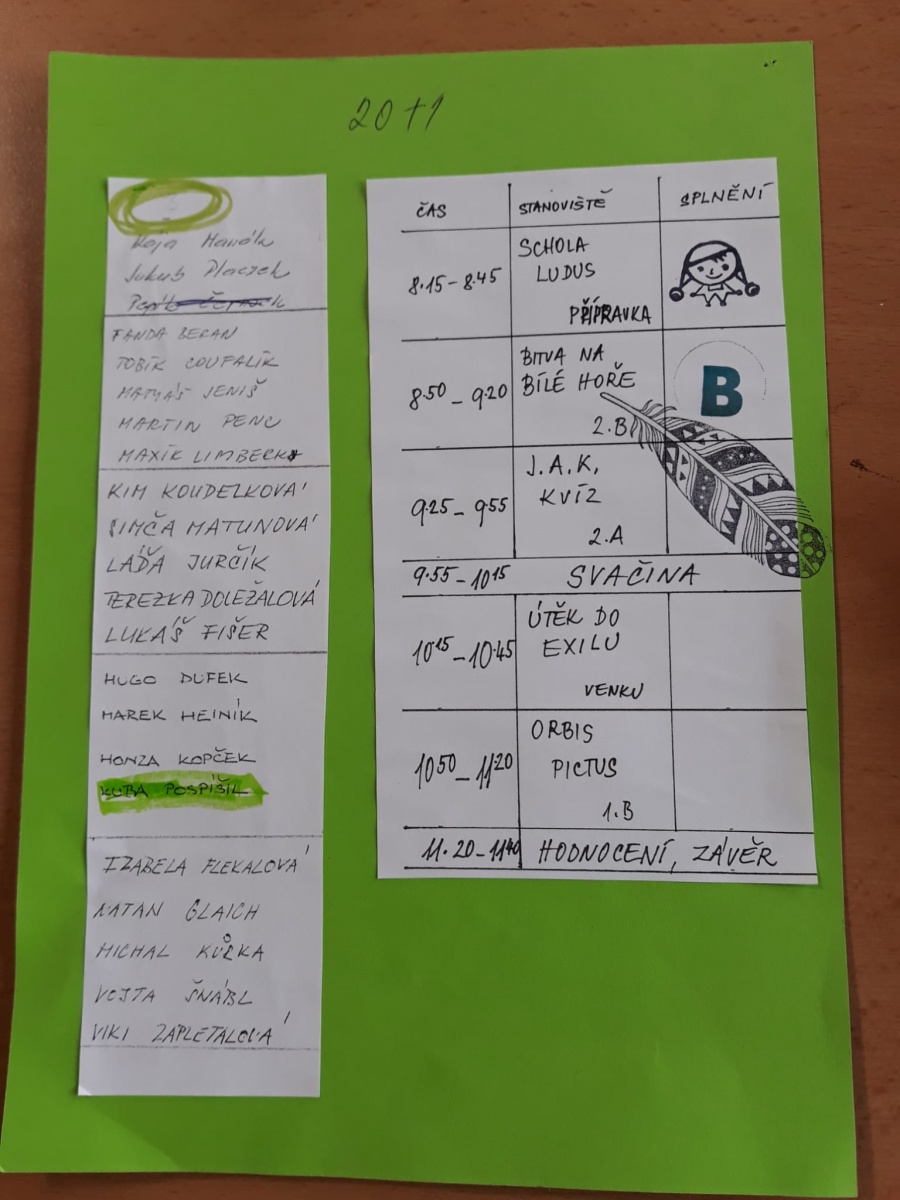 20+1
Kája Hanák
Jakub Placzek
FANDA BERAN
TOBÍK COUFALÍK
MATYÁŠ JENIŠ
MARTIN PENC
MAXÍK LIMBERK
KIM KOUDELKOVÁ
SIMČA MATUNOVÁ
LÁĎA JURČÍK
TEREZKA DOLEŽALOVÁ
LUKÁŠ FIŠER
HUGO DUFEK
MAREK HEINÍK
HONZA KOPČEK
KUBA POSPÍŠIL
IZABELA FLEKALOVÁ
NATAN GLAICH
MICHAL KŮRKA
VOJTA ŠNÁBL
VIKI ZAPLETALOVÁ
ČAS STANOVIŠTĚ SPLNĚNÍ
8.15 - 8.45 SCHOLA
LUDUS
PŘÍPRAVKA
8.50 - 9.20 BITVA NA
BÍLÉ HOŘE
2.B
B
9.25 - 9.55 J.A.K.
KVÍZ
2.A
9.55 - 10.15 SVAČINA
10.15 - 10.45 ÚTĚK DO
EXILU
VENKU
10.50 - 11.20 ORBIS
PICTUS
1.B
11.20 - 11.40 HODNOCENÍ, ZÁVĚR